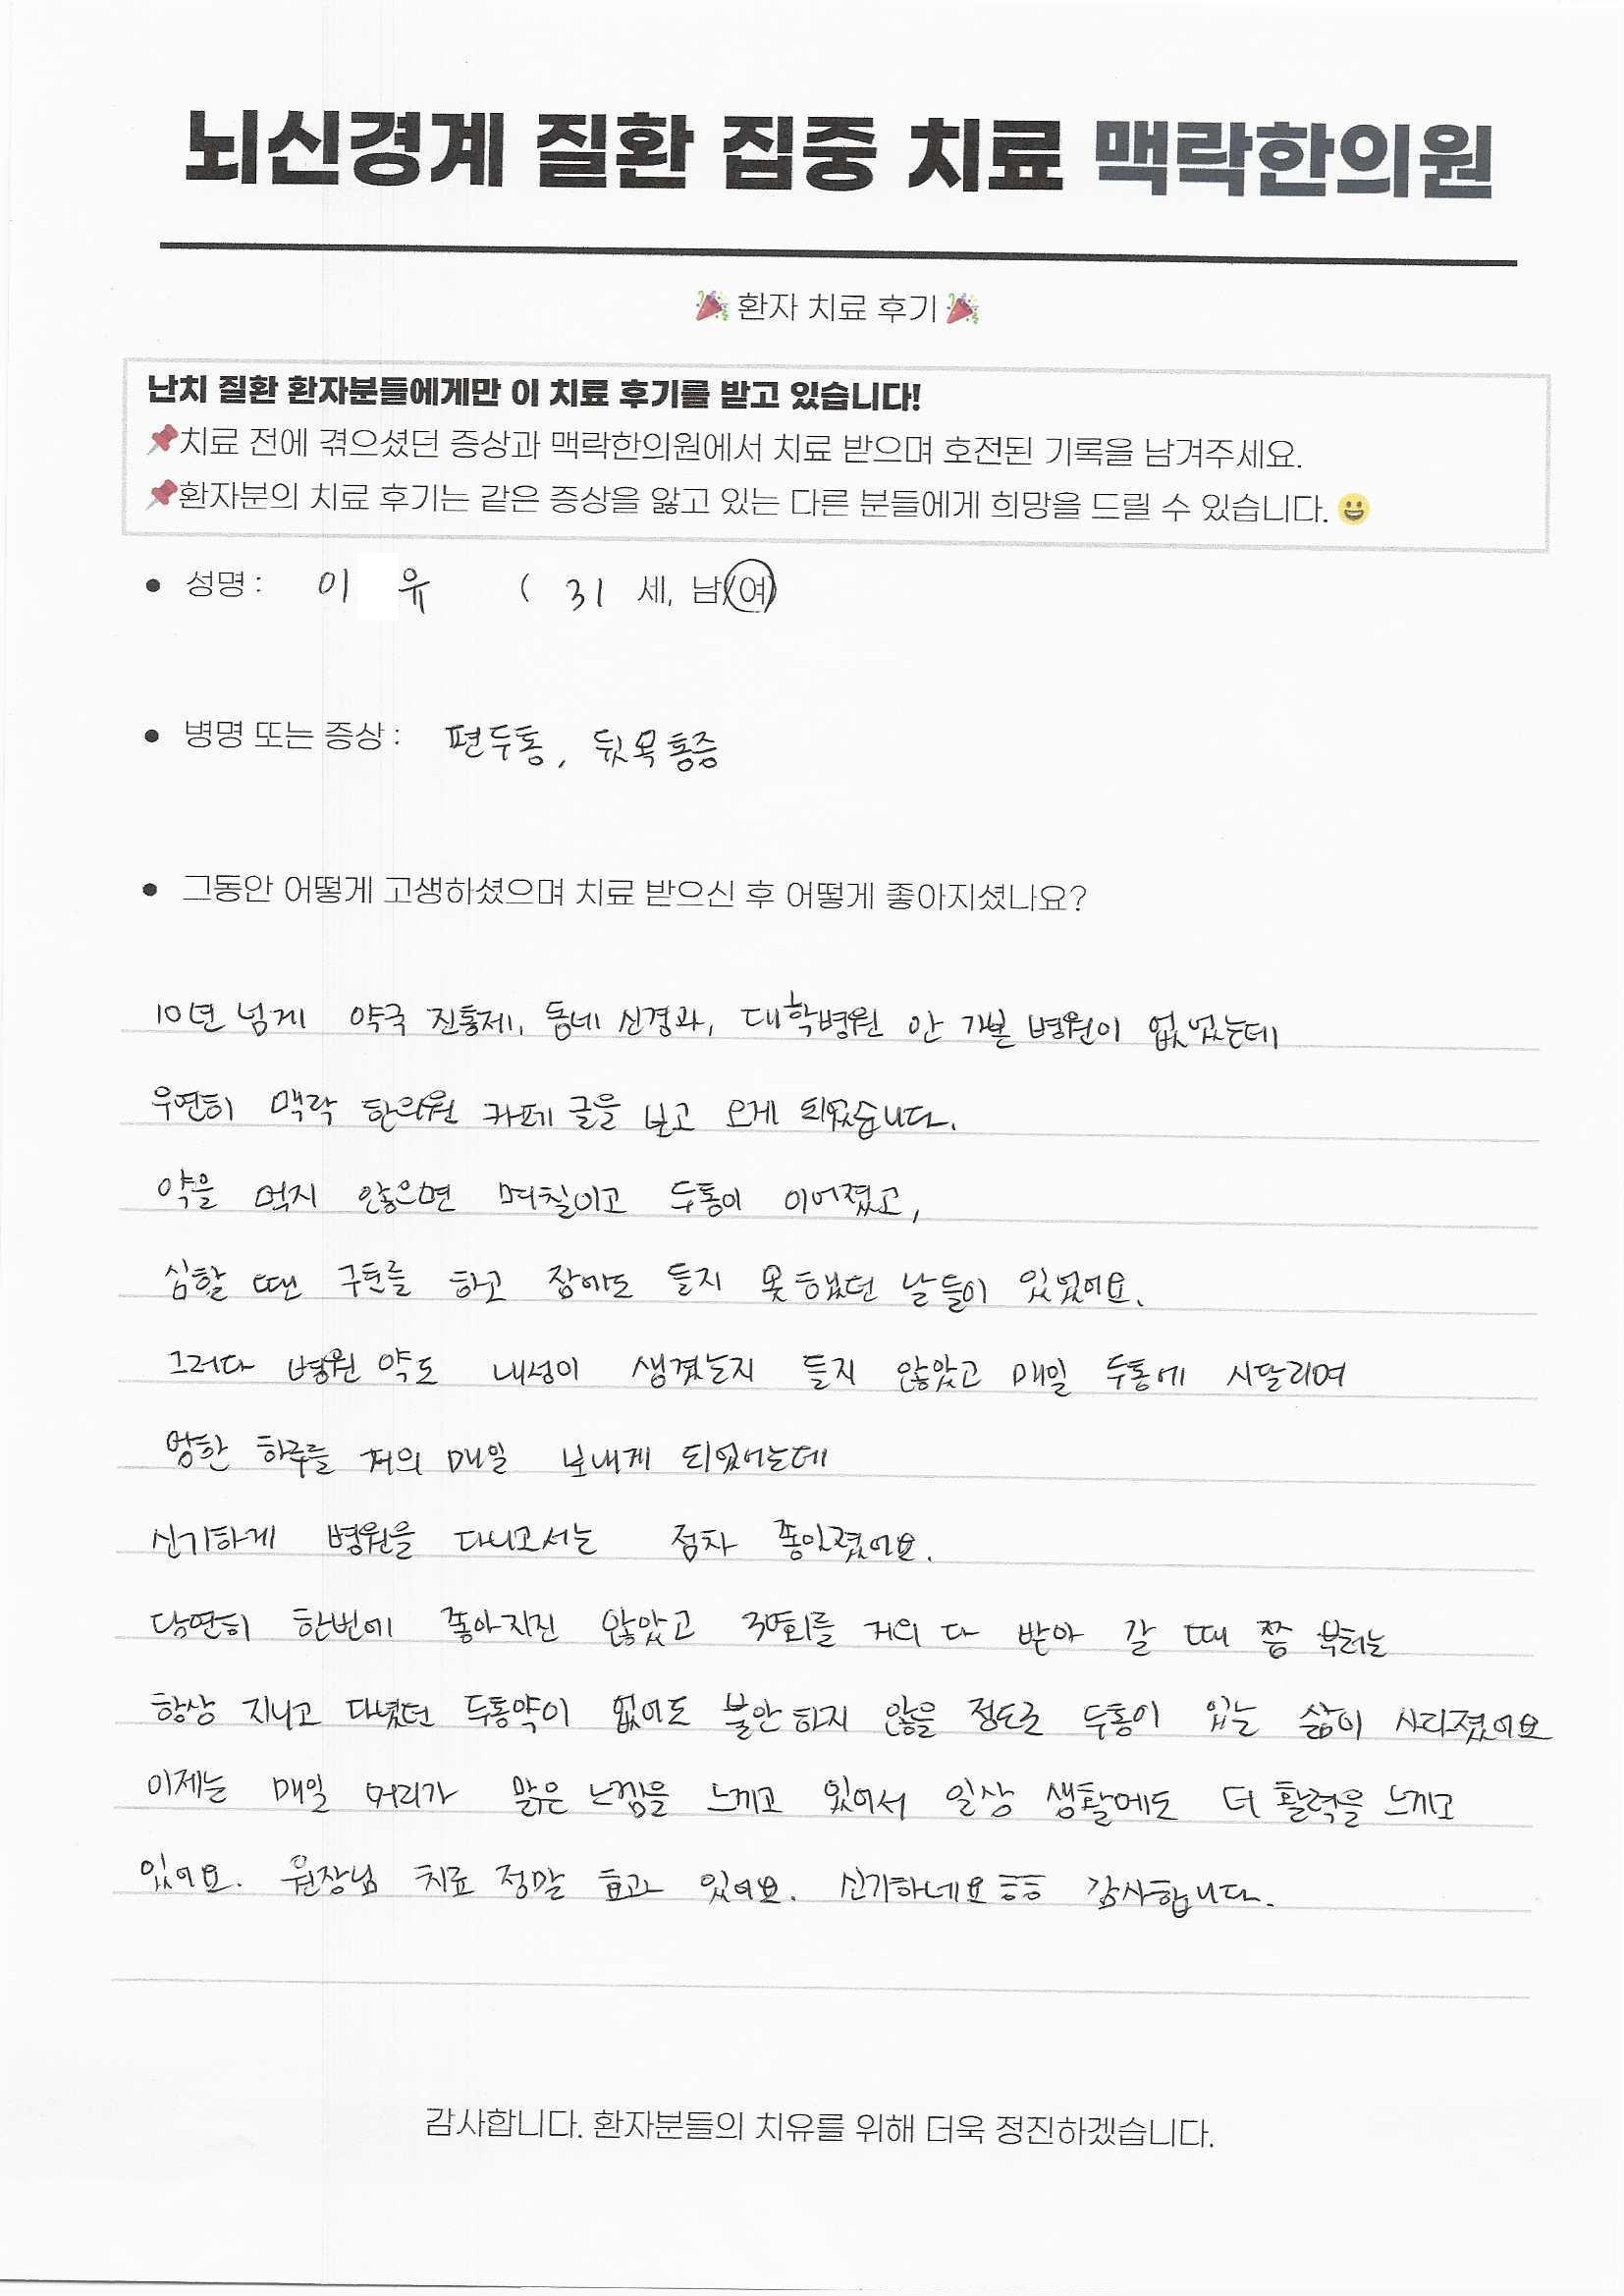 뇌신경계 질환 집중 치료 맥락한의원
🎉 환자 치료 후기 🎉
난치 질환 환자분들에게만 이 치료 후기를 받고 있습니다!
📌치료 전에 겪으셨던 증상과 맥락한의원에서 치료 받으며 호전된 기록을 남겨주세요.
📌환자분의 치료 후기는 같은 증상을 앓고 있는 다른 분들에게 희망을 드릴 수 있습니다.😀
• 성명 : 이 유 ( 31 세, 남/여)
• 병명 또는 증상 : 편두통, 뒷목 통증
• 그동안 어떻게 고생하셨으며 치료 받으신 후 어떻게 좋아지셨나요?
10년 넘게 약국 진통제, 동네 신경과, 대학병원 안 가본 병원이 없었는데
우연히 맥락 한의원 카페 글을 보고 오게 되었습니다.
약을 먹지 않으면 며칠이고 두통이 이어졌고,
심할 땐 구토를 하고 잠에도 들지 못했던 날들이 있었어요.
그러다 병원 약도 내성이 생겼는지 듣지 않았고 매일 두통에 시달리며
멍한 하루를 거의 매일 보내게 되었었는데
신기하게 병원을 다니고서는 점차 좋아졌어요.
당연히 한번에 좋아지진 않았고 30회를 거의 다 받아 갈 때 쯤 부터는
항상 지니고 다녔던 두통약이 없어도 불안하지 않을 정도로 두통이 있는 삶이 사라졌어요
이제는 매일 머리가 맑은 느낌을 느끼고 있어서 일상 생활에도 더 활력을 느끼고
있어요. 원장님 치료 정말 효과 있어요. 신기하네요ㅎㅎ 감사합니다.
감사합니다. 환자분들의 치유를 위해 더욱 정진하겠습니다.